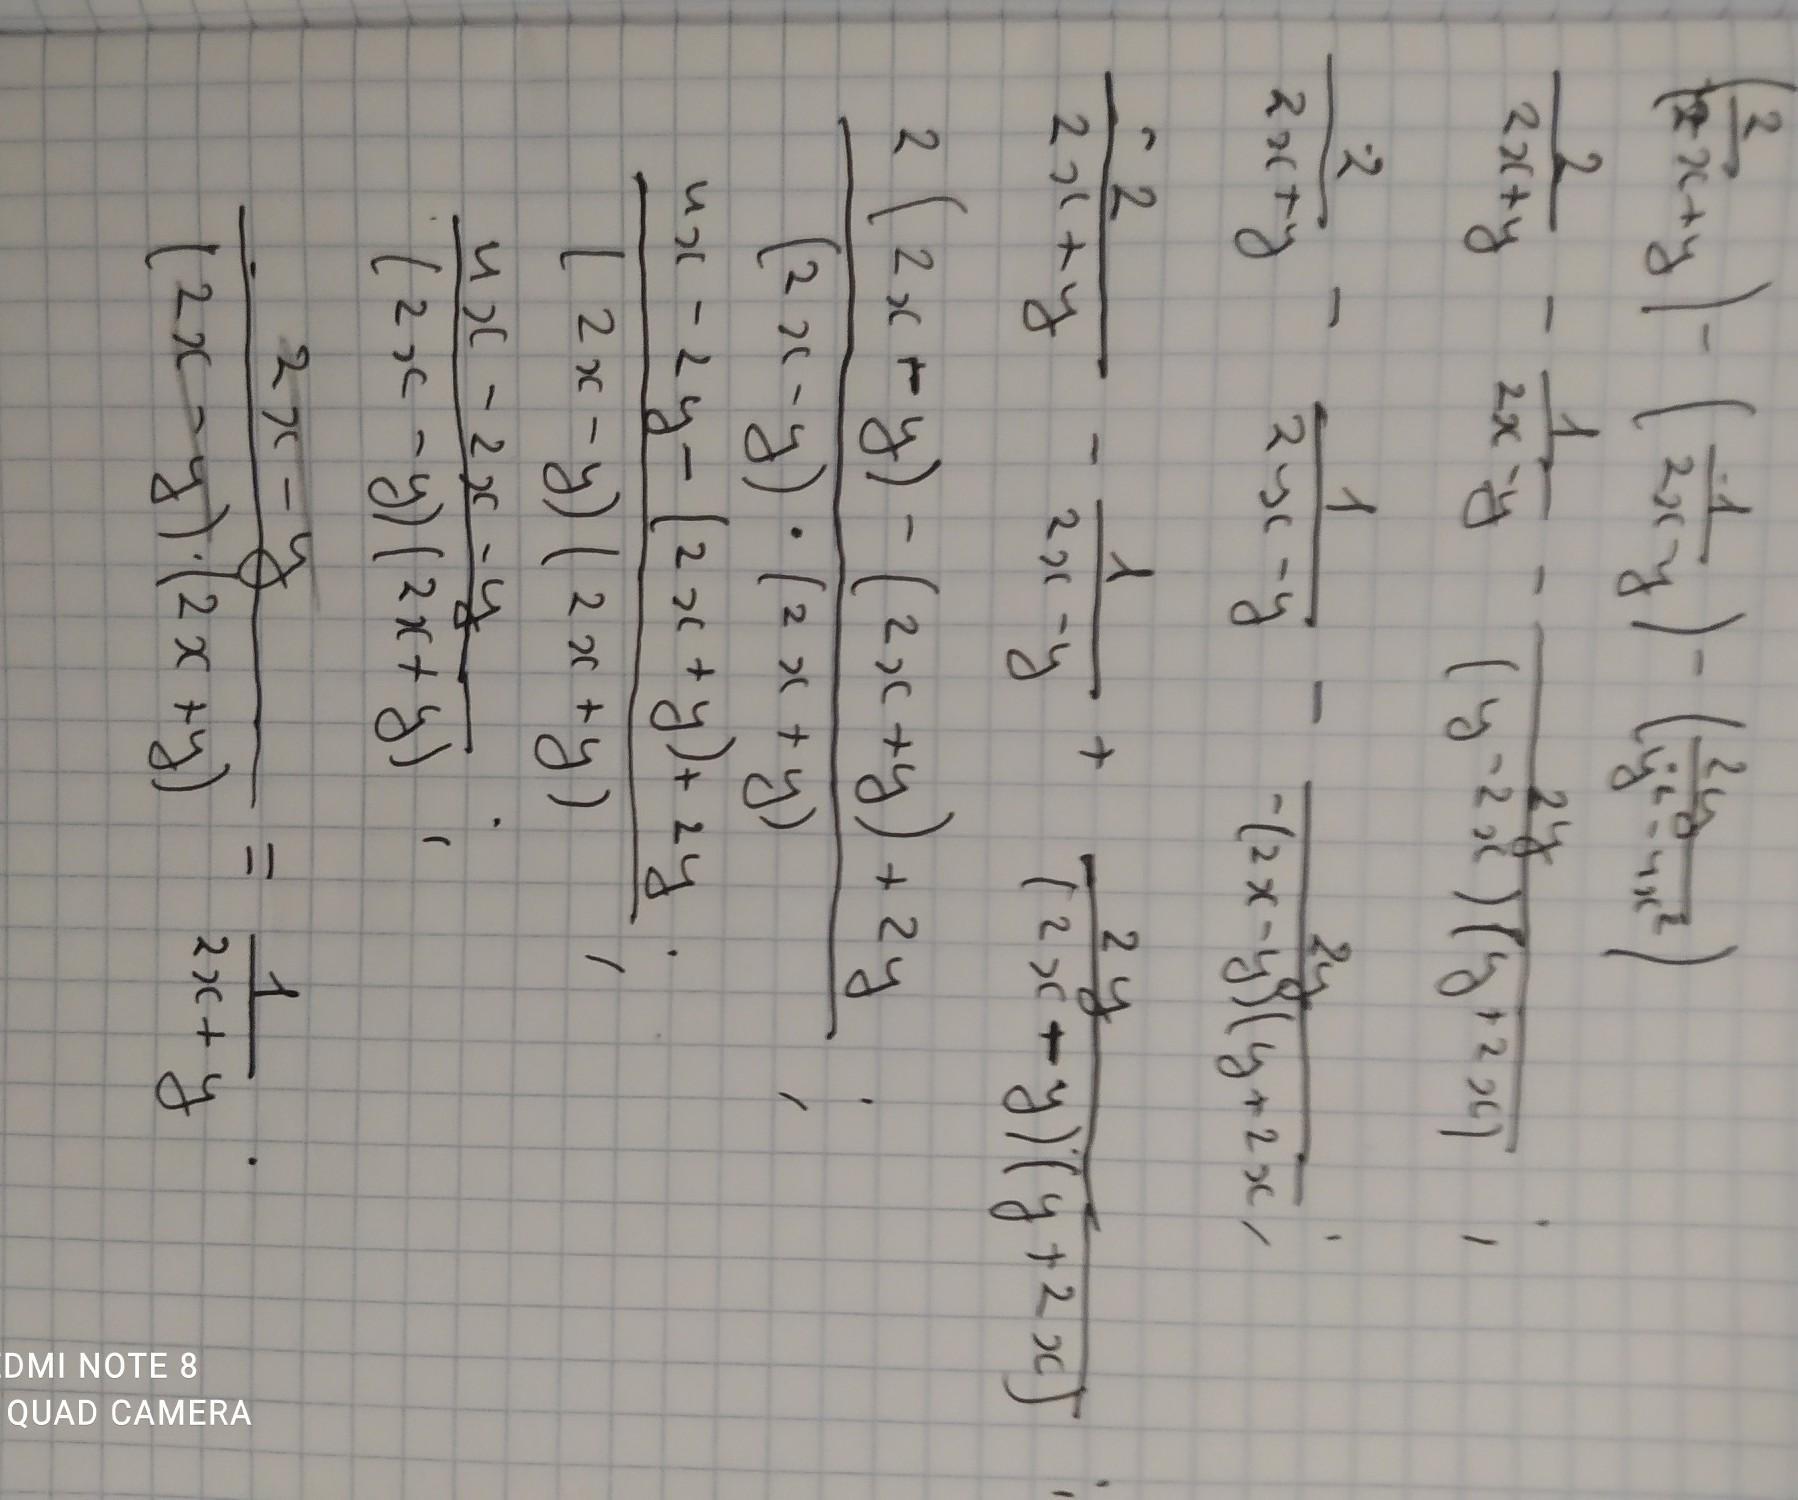 (2/2x+y) - (1/2x-y) - (2y/y²-4x²)
2/2x+y - 1/2x-y - 2y/(y-2x)(y+2x) ;
2/2x+y - 1/2x-y - 2y/-(2x-y)(y+2x) ;
2/2x+y - 1/2x-y + 2y/(2x-y)(y+2x) ;
2(2x-y)-(2x+y)+2y/(2x-y)·(2x+y) ;
4x-2y-(2x+y)+2y/(2x-y)(2x+y) ;
4x-2x-y/(2x-y)(2x+y) ;
2x-y/(2x-y)·(2x+y) = 1/2x+y .
REDMI NOTE 8
QUAD CAMERA